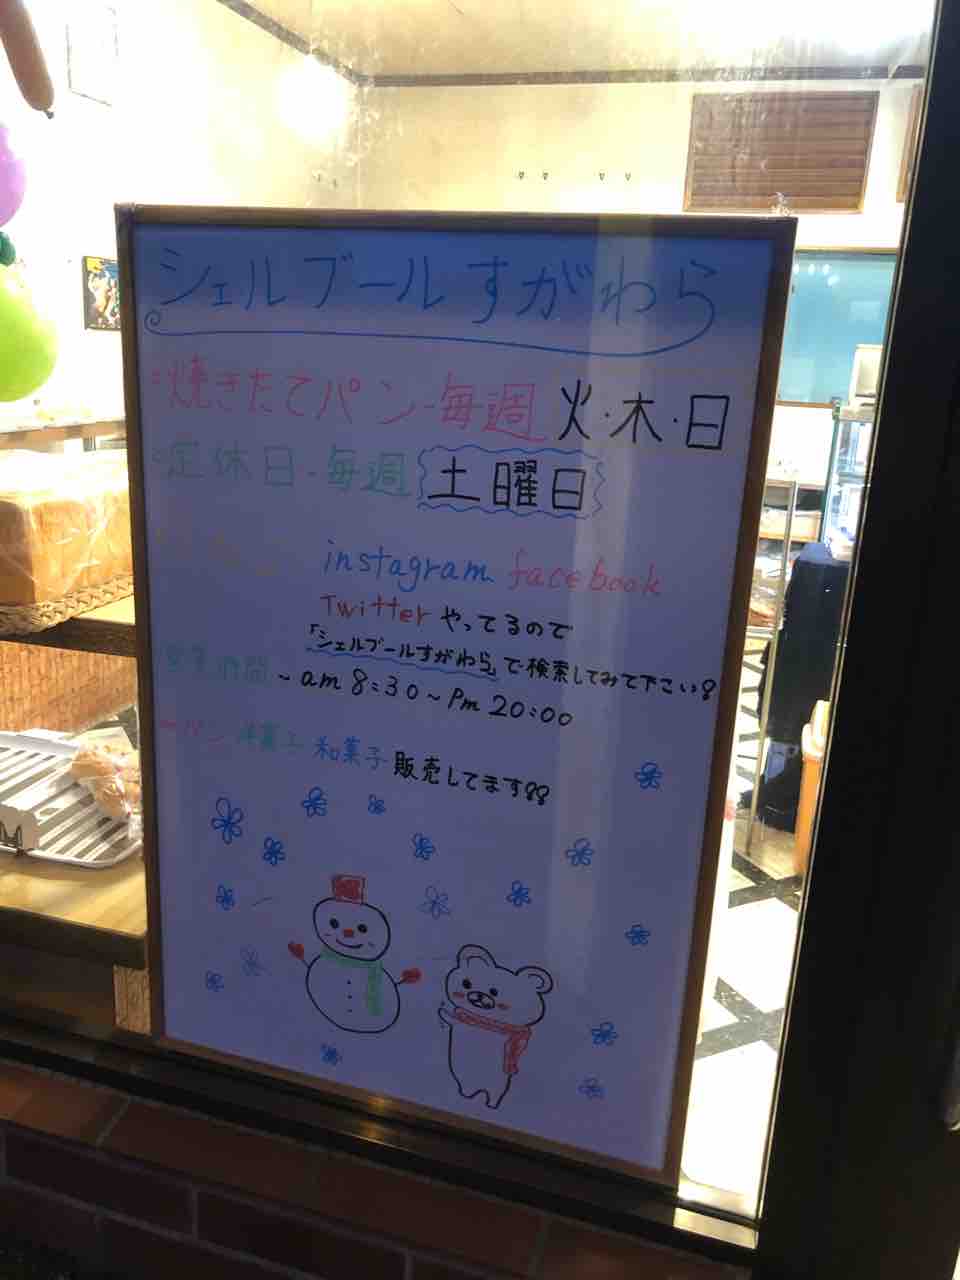 シェルブールすがわら
・焼きたてパン-毎週 火・木・日
・定休日-毎週 土曜日
instagram facebook
Twitter やってるので
「シェルブールすがわら」で検索してみて下さい!
時間 ~ am 8:30 ~ Pm 20:00
パン 洋菓子 和菓子 販売してます!!